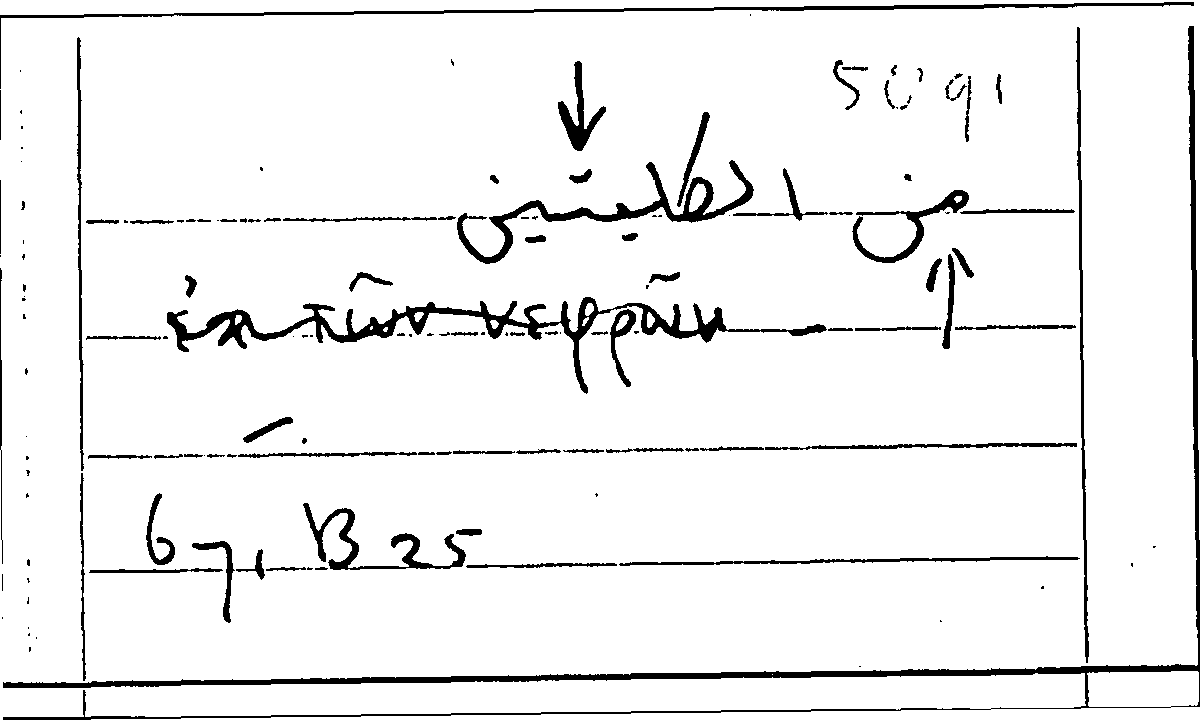 5091
↓
من الكليتين
↑
ἐκ τῶν νεφρῶν –
67, B 25